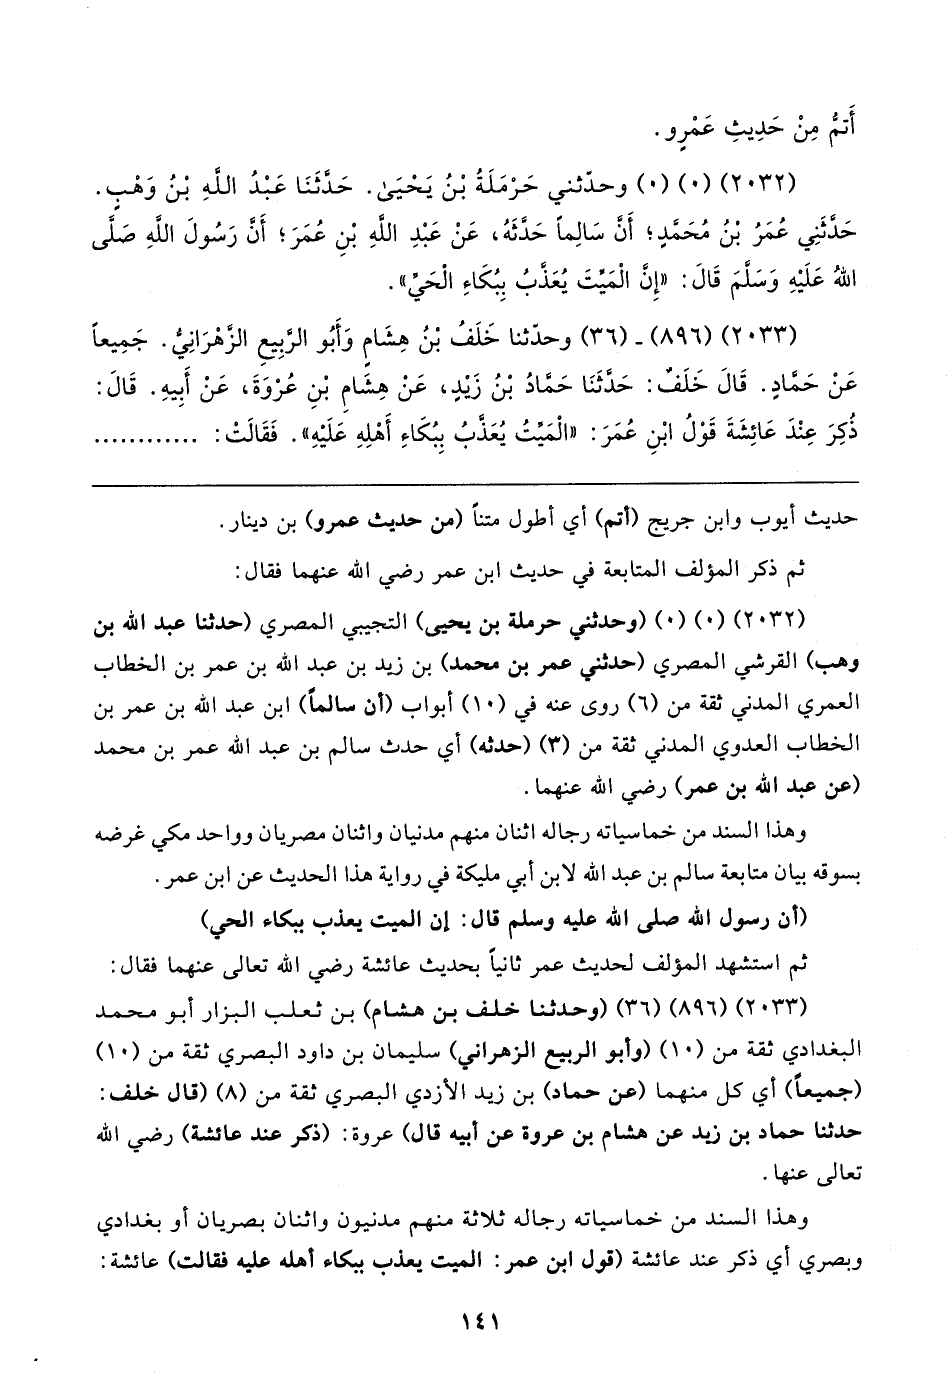 أَتَمُّ مِنْ حَدِيثِ عَمْرٍو.
(٢٠٣٢) (٠) (٠) وحدّثني حَرْمَلَةُ بْنُ يَحْيَىٰ. حَدَّثَنَا عَبْدُ اللَّهِ بْنُ وَهْبٍ.
حَدَّثَنِي عُمَرُ بْنُ مُحَمَّدٍ؛ أَنَّ سَالِماً حَدَّثَهُ، عَنْ عَبْدِ اللَّهِ بْنِ عُمَرَ؛ أَنَّ رَسُولَ اللَّهِ صَلَّى
اللهُ عَلَيْهِ وَسَلَّمَ قَالَ: «إِنَّ الْمَيِّتَ يُعَذَّبُ بِبُكَاءِ الْحَيِّ».
(٢٠٣٣) (٨٩٦) ـ (٣٦) وحدّثنا خَلَفُ بْنُ هِشَامٍ وَأَبُو الرَّبِيعِ الزَّهْرَانِيُّ. جَمِيعاً
عَنْ حَمَّادٍ. قَالَ خَلَفٌ: حَدَّثَنَا حَمَّادُ بْنُ زَيْدٍ، عَنْ هِشَامِ بْنِ عُرْوَةَ، عَنْ أَبِيهِ. قَالَ:
ذُكِرَ عِنْدَ عَائِشَةَ قَوْلُ ابْنِ عُمَرَ: «الْمَيِّتُ يُعَذَّبُ بِبُكَاءِ أَهْلِهِ عَلَيْهِ». فَقَالَتْ: ............
حديث أيوب وابن جريج (أتم) أي أطول متناً (من حديث عمرو) بن دينار.
ثم ذكر المؤلف المتابعة في حديث ابن عمر رضي الله عنهما فقال:
(٢٠٣٢) (٠) (٠) (وحدثني حرملة بن يحيى) التجيبي المصري (حدثنا عبد الله بن
وهب) القرشي المصري (حدثني عمر بن محمد) بن زيد بن عبد الله بن عمر بن الخطاب
العمري المدني ثقة من (٦) روى عنه في (١٠) أبواب (أن سالماً) ابن عبد الله بن عمر بن
الخطاب العدوي المدني ثقة من (٣) (حدثه) أي حدث سالم بن عبد الله عمر بن محمد
(عن عبد الله بن عمر) رضي الله عنهما.
وهذا السند من خماسياته رجاله اثنان منهم مدنيان واثنان مصريان وواحد مكي غرضه
بسوقه بيان متابعة سالم بن عبد الله لابن أبي مليكة في رواية هذا الحديث عن ابن عمر.
(أن رسول الله صلى الله عليه وسلم قال: إن الميت يعذب ببكاء الحي)
ثم استشهد المؤلف لحديث عمر ثانياً بحديث عائشة رضي الله تعالى عنهما فقال:
(٢٠٣٣) (٨٩٦) (٣٦) (وحدثنا خلف بن هشام) بن ثعلب البزار أبو محمد
البغدادي ثقة من (١٠) (وأبو الربيع الزهراني) سليمان بن داود البصري ثقة من (١٠)
(جميعاً) أي كل منهما (عن حماد) بن زيد الأزدي البصري ثقة من (٨) (قال خلف:
حدثنا حماد بن زيد عن هشام بن عروة عن أبيه قال) عروة: (ذكر عند عائشة) رضي الله
تعالى عنها.
وهذا السند من خماسياته رجاله ثلاثة منهم مدنيون واثنان بصريان أو بغدادي
وبصري أي ذكر عند عائشة (قول ابن عمر: الميت يعذب ببكاء أهله عليه فقالت) عائشة:
١٤١